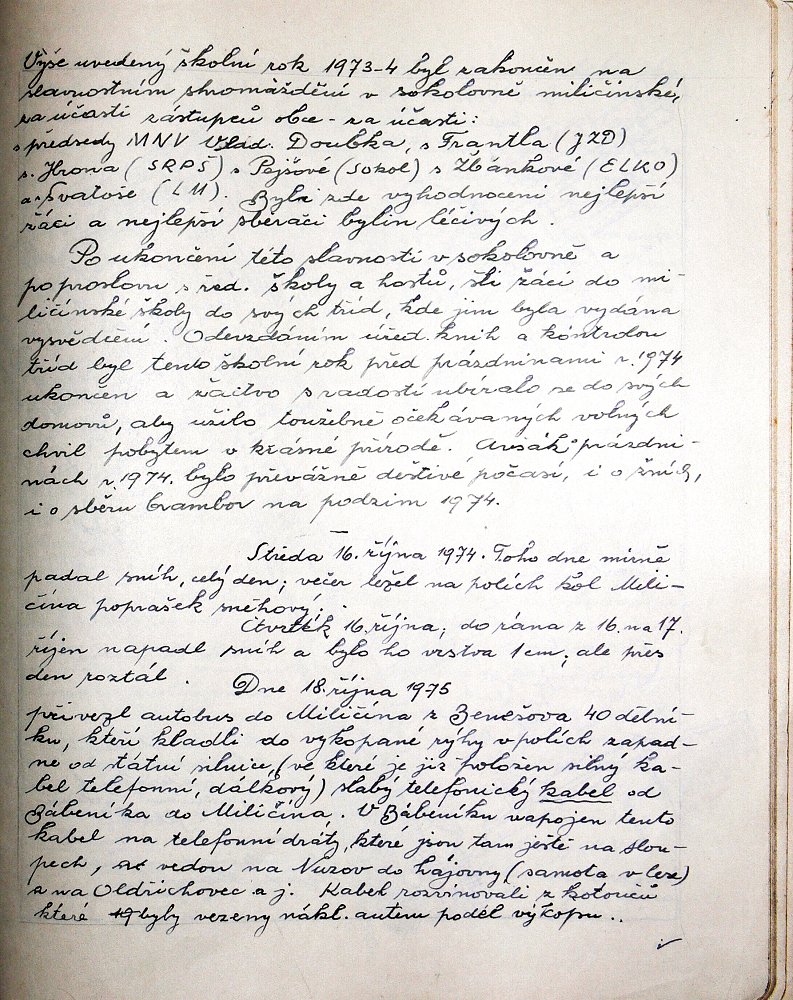 Výše uvedený školní rok 1973-4 byl zakončen na
slavnostním shromáždění v sokolovně miličínské,
za účasti zástupců obce - za účasti:
s předsedy MNV Vlad. Doubka, s Frantla (JZD)
s. Hrowa (SRPŠ) s Pajšové (Sokol) s Žbánkové (ELKO)
a s. Svatoše (LM). Byli zde vyhodnoceni nejlepší
žáci a nejlepší sběrači bylin léčivých.
Po ukončení této slavnosti v sokolovně a
po proslovu s řed. školy a hostů, šli žáci do mi-
ličínské školy do svých tříd, kde jim byla vydána
vysvědčení. Odevzdáním úřed. knih a kontrolou
tříd byl tento školní rok před prázdninami r. 1974
ukončen a žactvo s radostí ubíralo se do svých
domovů, aby užilo toužebně očekávaných volných
chvil pobytem v krásné přírodě. Avšak o prázdni-
nách r. 1974. bylo převážně deštivé počasí, i o žních,
i o sběru brambor na podzim 1974.
Středa 16. října 1974. Toho dne mírně
padal sníh, celý den; večer ležel na polích kol Mili-
čína poprašek sněhový.
Čtvrtek 16. října; do rána z 16. na 17.
říjen napadl sníh a bylo ho vrstva 1 cm; ale přes
den roztál.
Dne 18. října 1975
přivezl autobus do Miličína z Benešova 40 dělní-
ku, kteří kladli do vykopané rýhy v polích západ-
ně od státní silnice, (ve které je již položen silný ka-
bel telefonní, dálkový) slabý telefonický kabel od
Zábeníka do Miličína. V Zábeníku napojen tento
kabel na telefonní dráty, které jsou tam ještě na slou-
pech, vedou na Nuzov do hájovny (samota v lese)
a na Oldřichovec a j. Kabel rozvinovali z kotoučů
které byly vezeny nákl. autem podél výkopu..